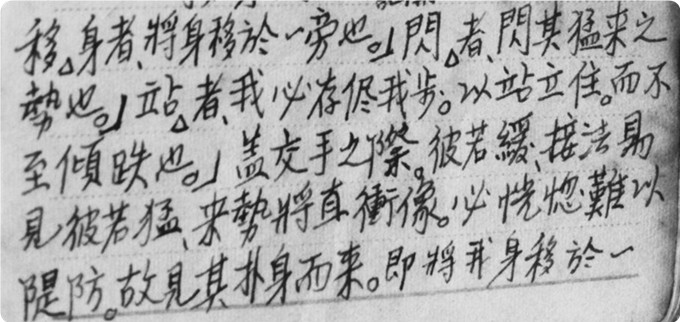 移△身者、將身移於一旁也。」閃△者、閃其猛来之
勢也。」站△者、我必存侭我步。以站立住。而不
至傾跌也。」盖交手之際。彼若緩、接法易
見彼若猛、来勢將直衝像。必恍惚難以
隄防。故見其扑身而来。即將我身移於一